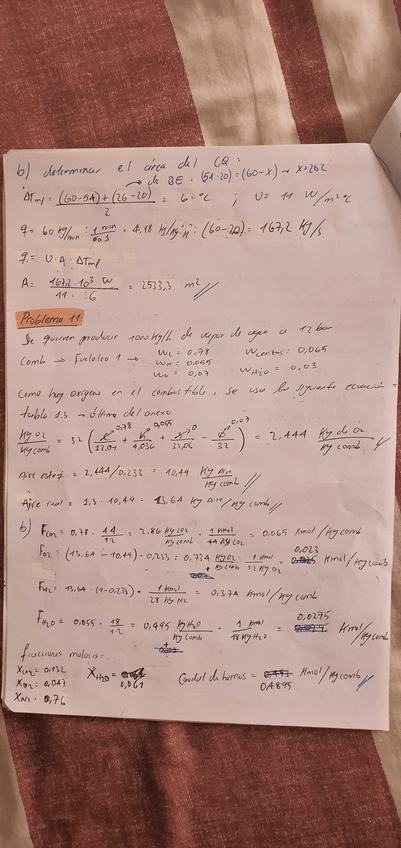 b) determinar el área del CQ:
de BE: (54-20) = (60-X) → X=26ºC
ΔTml = (60-54)+(26-20) / 2 = 6 ºC ; U= 11 W/m²ºC
q= 60 kg/min · 1 min / 60 s · 4,18 kJ/kg·K · (60-20) = 167,2 Kg/s
q= U·A·ΔTml
A= 167,2·10³ W / 11 · 6 = 2533,3 m²
Problema 11
Se quieren producir 1000 kg/h de vapor de agua a 12 bar
Comb → Fueloleo 1 → Wc = 0,78 Wcenizas: 0,065
WH = 0.055 WAzo = 0,03
Wo = 0,07
Como hay oxigeno en el combustible, se usa la siguiente ecuación =
tabla 1.3 → última del anexo
Kg O2 / Kg comb = 32 ( C 0,78 / 12,01 + H 0,055 / 4,036 + S 0 / 32,06 - O 0,07 / 32 ) = 2,444 Kg de O2 / Kg comb
Aire esteq = 2,444/0.233 = 10,49 Kg Aire / Kg comb
Aire real = 1,3 · 10,49 = 13,64 Kg Aire/Kg comb
b) FCO2= 0,78 · 44 / 12 = 2,86 Kg CO2 / Kg comb · 1 Kmol / 44 Kg CO2 = 0,065 Kmol/Kg comb
FO2 = (13,64 - 10,49) · 0,233 = 0,734 Kg O2 / Kg comb · 1 Kmol / 32 Kg O2 = 0,023 Kmol/Kg comb
FN2= 13,64 · (1-0,233) · 1 Kmol / 28 Kg N2 = 0,374 Kmol/Kg comb
FH2O = 0,055 · 18 / 2 = 0,495 Kg H2O / Kg comb · 1 Kmol / 18 Kg H2O = 0,0275 Kmol/Kg comb
fracciones molares:
XCO2= 0,132 XH2O = 0,061 Caudal de humos = 0,4895 Kmol/Kg comb
XO2= 0,047
XN2= 0,76